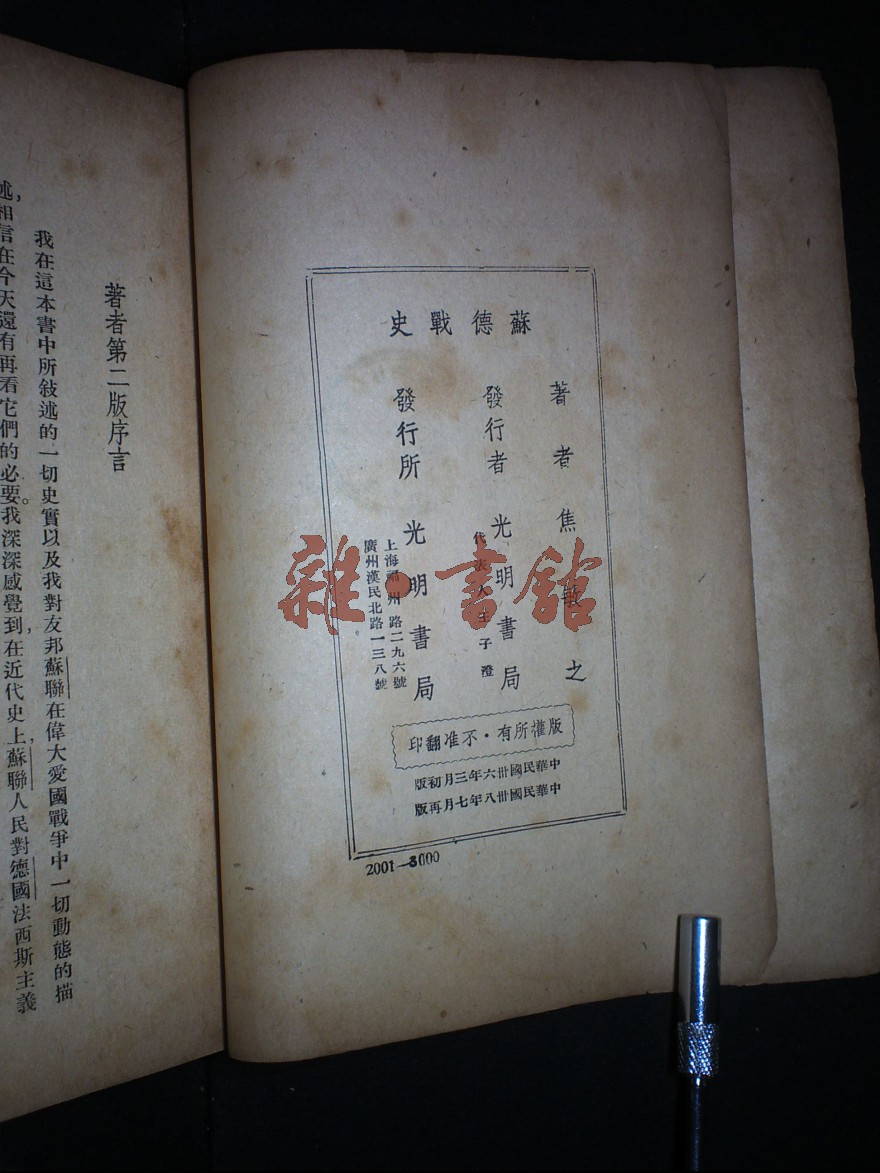 蘇德戰史
著者 焦敏之
發行者 光明書局
代表人王子澄
發行所 光明書局
上海福州路二九六號
廣州漢民北路一三八號
版權所有・不准翻印
中華民國卅六年三月初版
中華民國卅八年七月再版
2001—3000
雜・書館
著者第二版序言
我在這本書中所敍述的一切史實以及我對友邦蘇聯在偉大愛國戰爭中一切動態的描
述,相信在今天還有再看它們的必要。我深深感覺到,在近代史上,蘇聯人民對德國法西斯主義